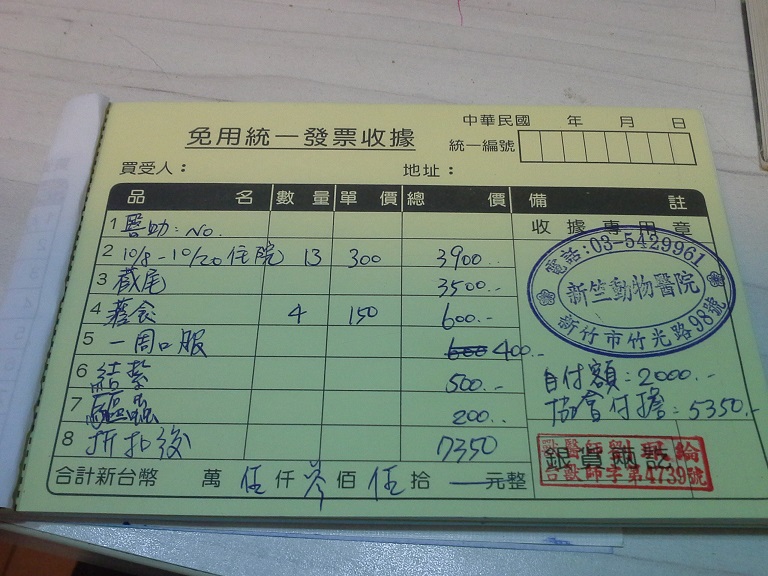 中華民國 年 月 日
免用統一發票收據
統一編號
買受人： 地址：
品 名 數 量 單 價 總 價 備 註
1 醫助：No.
收據專用章
2 10/8-10/20 住院 13 300 3900.-
3 截尾 3500.-
4 蕾食 4 150 600.-
5 一周口服 600 400.-
6 結紮 500.-
7 驅蟲 200.-
8 折扣後 7350
電話：03-5429961
新竺動物醫院
新竹市竹光路98號
自付額：2000.-
協會付擔：5350.-
銀貨兩訖
獸醫師劉
綸
師字第4739號
合計新台幣 萬 伍仟參佰伍拾 元整